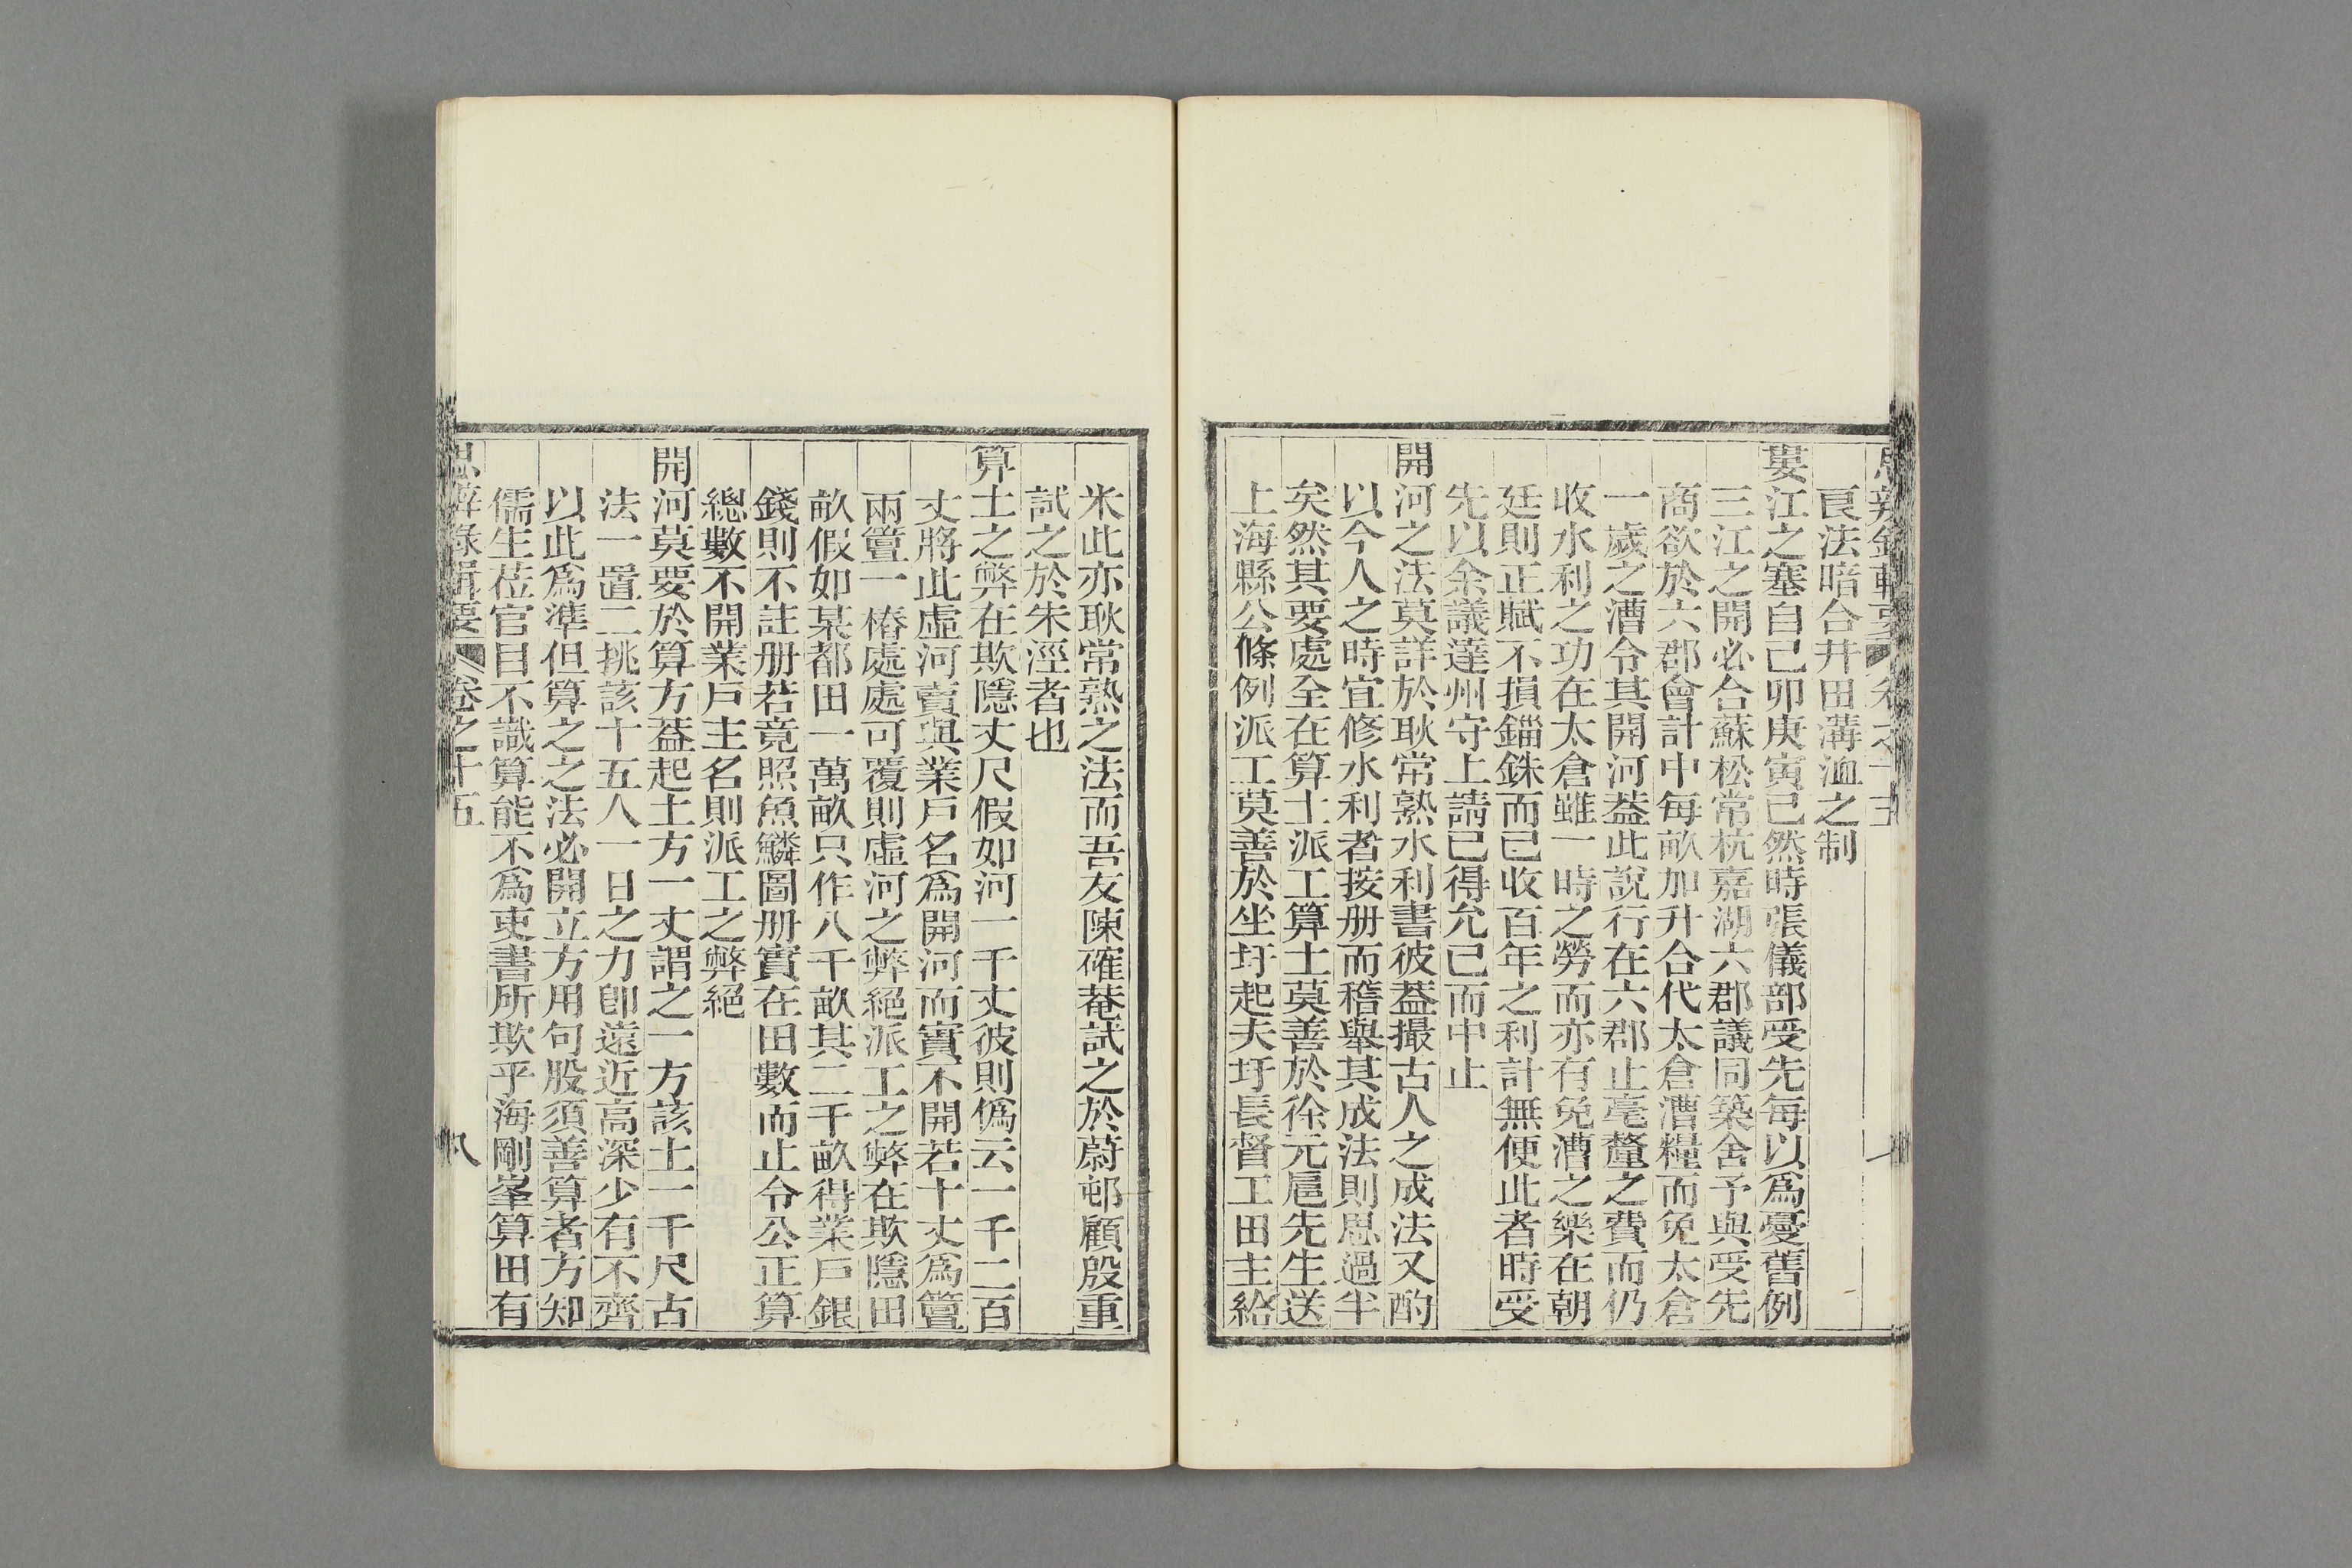 良法暗合井田溝洫之制
婁江之塞自己卯庚寅已然時張儀部受先每以爲憂舊例
三江之開必合蘇松常杭嘉湖六郡議同築舍予與受先
商欲於六郡會計中每畝加升合代太倉漕糧而免太倉
一歲之漕令其開河葢此說行在六郡止毫釐之費而仍
收水利之功在太倉雖一時之勞而亦有免漕之樂在朝
廷則正賦不損錙銖而已收百年之利計無便此者時受
先以余議達州守上請已得允已而中止
開河之法莫詳於耿常熟水利書彼葢撮古人之成法又酌
以今人之時宜修水利者按册而稽舉其成法則思過半
矣然其要處全在算土派工算土莫善於徐元扈先生送
上海縣公條例派工莫善於坐圩起夫圩長督工田主給
米此亦耿常熟之法而吾友陳確菴試之於蔚邨顧殷重
試之於朱涇者也
算土之弊在欺隱丈尺假如河一千丈彼則僞云一千二百
丈將此虛河賣與業戶名爲開河而實不開若十丈爲簹
兩簹一樁處處可覆則虛河之弊絕派工之弊在欺隱田
畝假如某都田一萬畝只作八千畝其二千畝得業戶銀
錢則不註册若竟照魚鱗圖册實在田數而止令公正算
總數不開業戶主名則派工之弊絕
開河莫要於算方葢起土方一丈謂之一方該土一千尺古
法一置二挑該十五人一日之力卽遠近高深少有不齊
以此爲準但算之之法必開立方用句股須善算者方知
儒生莅官目不識算能不爲吏書所欺乎海剛峯算田有
思辨錄輯要 卷之十五 八